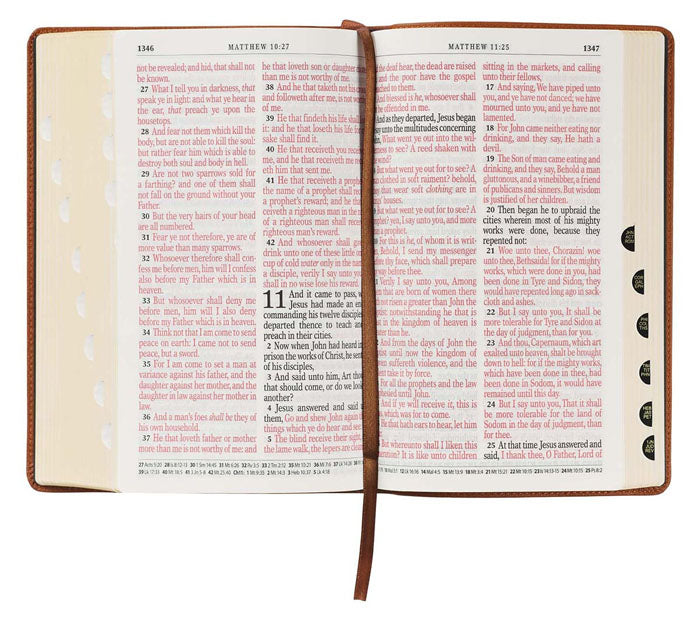 1346 MATTHEW 10:27
not be revealed; and hid, that shall not
be known.
27 What I tell you in darkness, that
speak ye in light: and what ye hear in
the ear, that preach ye upon the
housetops.
28 And fear not them which kill the
body, but are not able to kill the soul:
but rather fear him which is able to
destroy both soul and body in hell.
29 Are not two sparrows sold for
a farthing? and one of them shall
not fall on the ground without your
Father.
30 But the very hairs of your head
are all numbered.
31 Fear ye not therefore, ye are of
more value than many sparrows.
32 Whosoever therefore shall con-
fess me before men, him will I confess
also before my Father which is in
heaven.
33 But whosoever shall deny me
before men, him will I also deny
before my Father which is in heaven.
34 Think not that I am come to send
peace on earth: I came not to send
peace, but a sword.
35 For I am come to set a man at
variance against his father, and the
daughter against her mother, and the
daughter in law against her mother in
law.
36 And a man's foes shall be they of
his own household.
37 He that loveth father or mother
more than me is not worthy of me: and
he that loveth son or daughter
than me is not worthy of me.
38 And he that taketh not his
and followeth after me, is not
of me.
39 He that findeth his life shall
it: and he that loseth his life for
sake shall find it.
40 He that receiveth you receiveth
me, and he that receiveth me
eth him that sent me.
41 He that receiveth a prophet
the name of a prophet shall
a prophet's reward; and he that
ceiveth a righteous man in the name
of a righteous man shall receive
righteous man's reward.
42 And whosoever shall give
drink unto one of these little
cup of cold water only in the name
a disciple, verily I say unto you
shall in no wise lose his reward.
11 And it came to pass,
Jesus had made an end
commanding his twelve disciples
departed thence to teach and
preach in their cities.
2 Now when John had heard in
prison the works of Christ, he sent
of his disciples,
3 And said unto him, Art thou
that should come, or do we look
another?
4 Jesus answered and said
them, Go and shew John again
things which ye do hear and see:
5 The blind receive their sight,
the lame walk, the lepers are
27 Acts 5:20 28 Is 8:12-13 30 1 Sm 14:45 31 Mt 6:26 32 Rv 3:5 33 2 Tm 2:12 35 Mt 10:21 36 Mt 7:6 37 Lk 14:26
39 Lk 17:33 40 Mt 18:5 41 3 Jn 5-8 42 Mt 25:40 Ch11: 1 Mt 9:35 2 Mt 14:3 3 Hb 10:37 5 Lk 4:18
MATTHEW 11:25 1347
the deaf hear, the dead are raised
and the poor have the gospel
to them.
And blessed is he, whosoever shall
be offended in me.
And as they departed, Jesus began
say unto the multitudes concerning
What went ye out into the
to see? A reed shaken with
But what went ye out for to see? A
clothed in soft raiment? behold,
that wear soft clothing are in
houses.
But what went ye out for to see? A
yea, I say unto you, and more
For this is he, of whom it is writ-
Behold, I send my messenger
thy face, which shall prepare
way before thee.
Verily I say unto you, Among
that are born of women there
not risen a greater than John the
notwithstanding he that is
in the kingdom of heaven is
than he.
And from the days of John the
until now the kingdom of
suffereth violence, and the
For all the prophets and the law
until John.
And if ye will receive it, this is
which was for to come.
that hath ears to hear, let him
But whereunto shall I liken this
It is like unto children
sitting in the markets, and calling
unto their fellows,
17 And saying, We have piped unto
you, and ye have not danced; we have
mourned unto you, and ye have not
lamented.
18 For John came neither eating nor
drinking, and they say, He hath a
devil.
19 The Son of man came eating and
drinking, and they say, Behold a man
gluttonous, and a winebibber, a friend
of publicans and sinners. But wisdom
is justified of her children.
20 Then began he to upbraid the
cities wherein most of his mighty
works were done, because they
repented not:
21 Woe unto thee, Chorazin! woe
unto thee, Bethsaida! for if the mighty
works, which were done in you, had
been done in Tyre and Sidon, they
would have repented long ago in sack-
cloth and ashes.
22 But I say unto you, It shall be
more tolerable for Tyre and Sidon at
the day of judgment, than for you.
23 And thou, Capernaum, which art
exalted unto heaven, shalt be brought
down to hell: for if the mighty works,
which have been done in thee, had
been done in Sodom, it would have
remained until this day.
24 But I say unto you, That it shall
be more tolerable for the land of
Sodom in the day of judgment, than
for thee.
25 At that time Jesus answered and
said, I thank thee, O Father, Lord of
JHN
ACT
ROM
COR
GAL
EPH
PHI
COL
THS
TIM
TIT
PHN
HEB
JAS
PET
1JN
JUD
REV